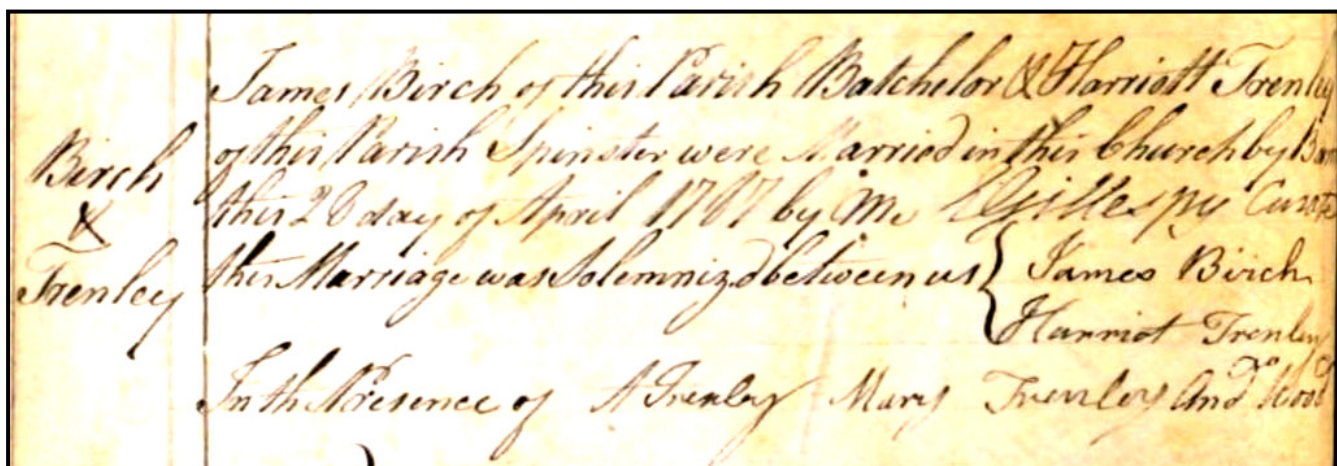 Birch
&
Trenley
James Birch of this Parish Batchelor & Harriott Trenley
of this Parish Spinster were Married in this Church by
this day of April by Me Gillespy Curate
this Marriage was Solemnized between us { James Birch
Harriot Trenley
In the Presence of A Trenley Mary Trenley And^w